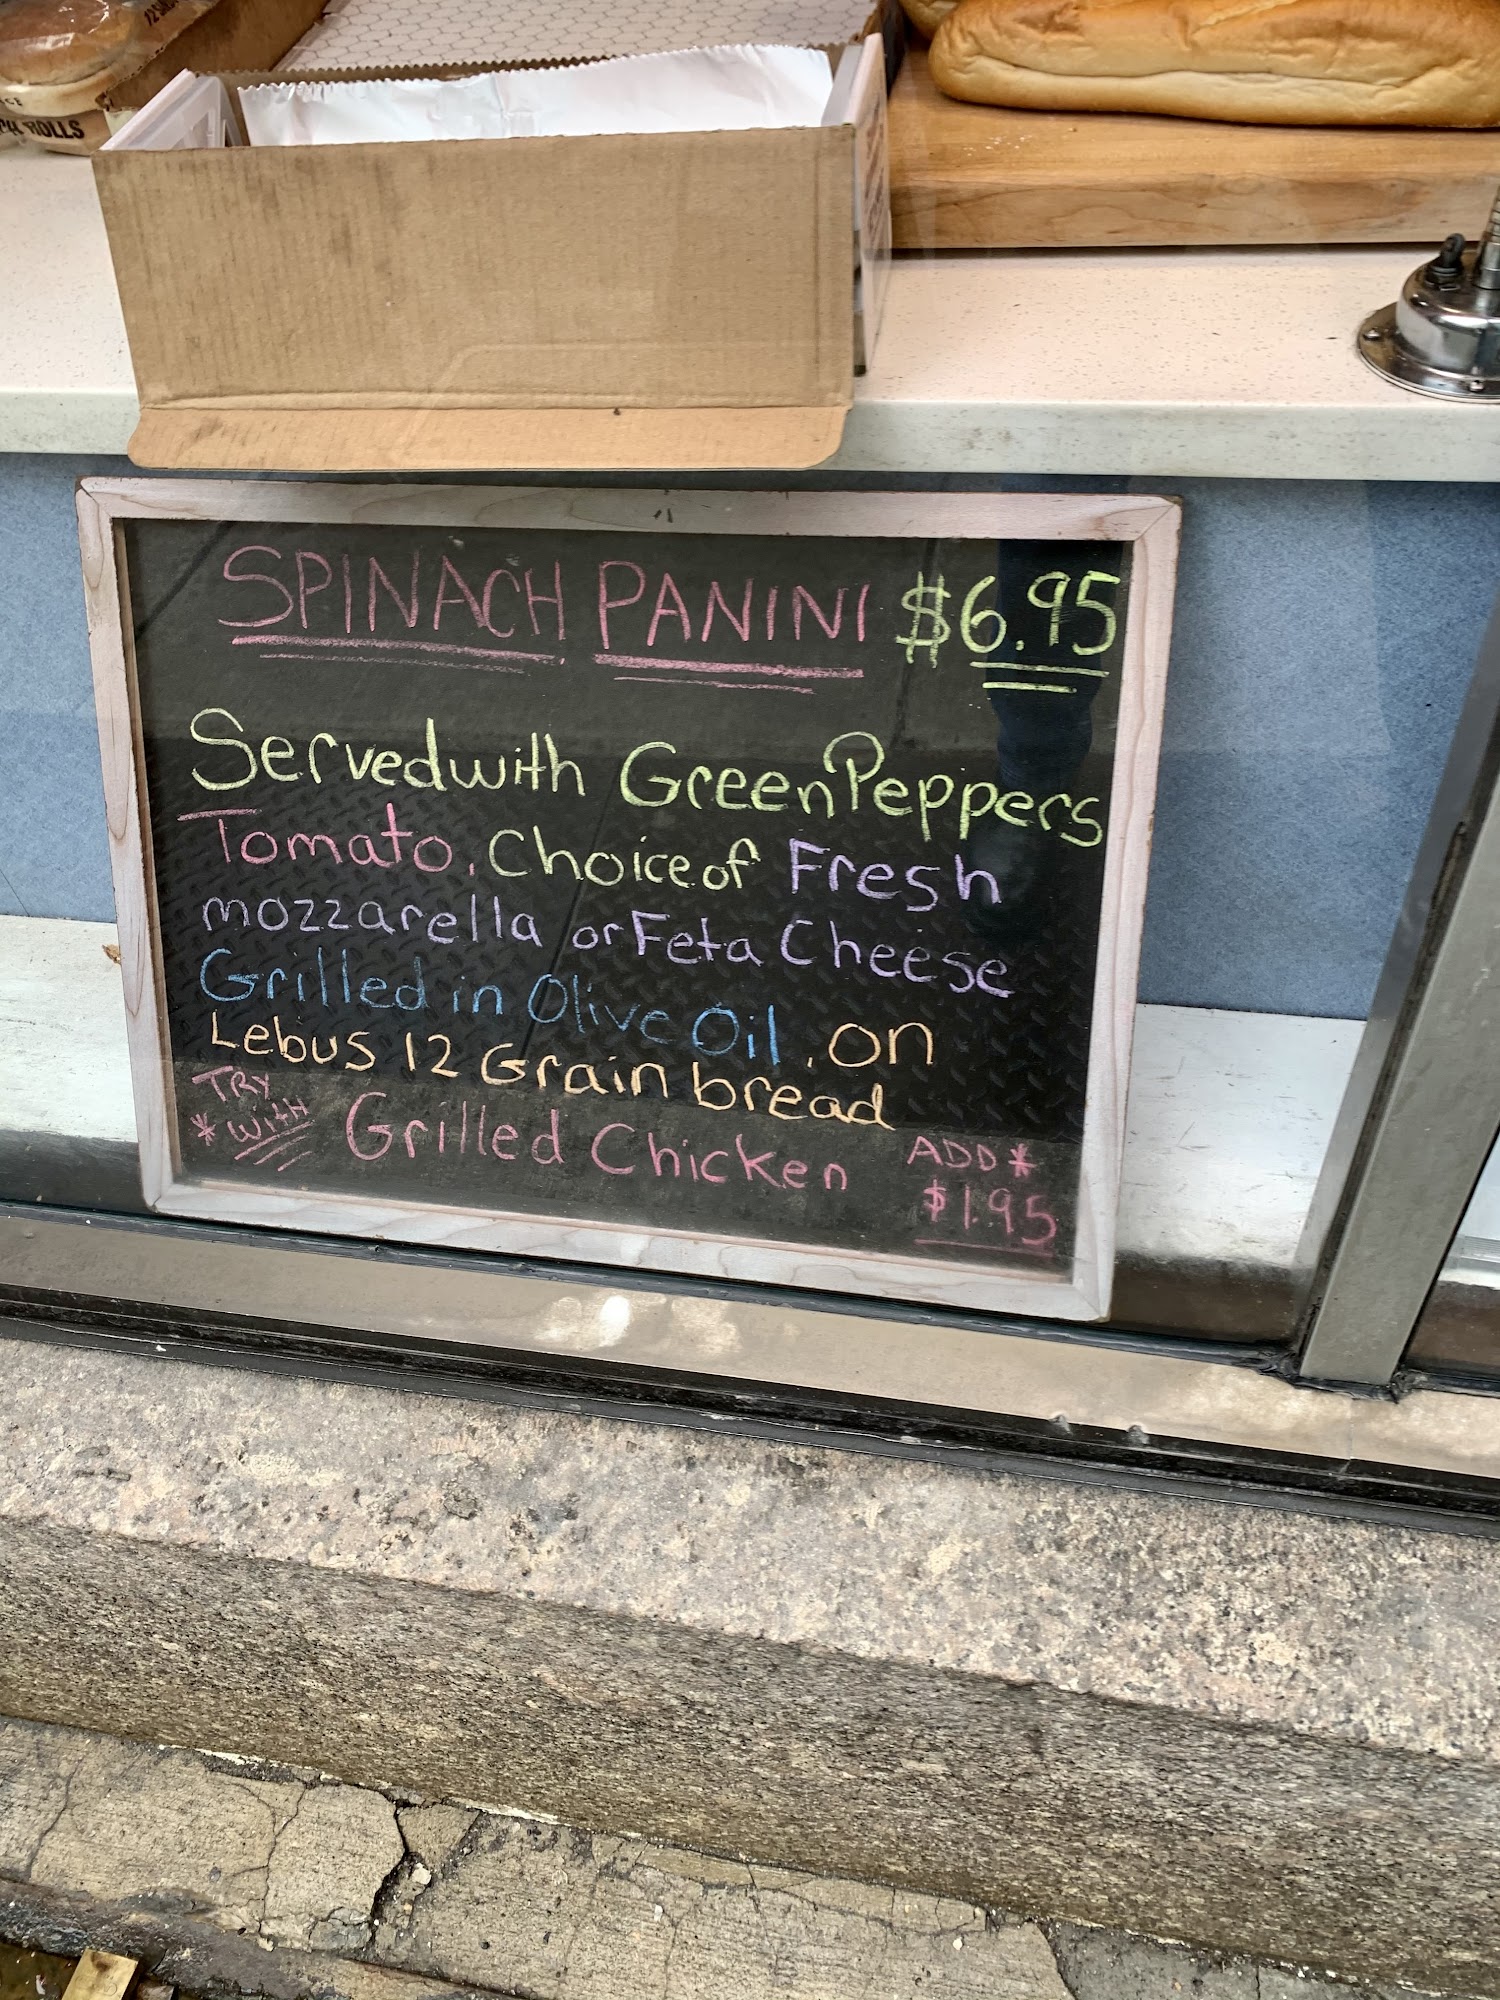 CH ROLLS
SPINACH PANINI $6.95
Served with Green Peppers
Tomato, Choice of Fresh
mozzarella or Feta Cheese
Grilled in Olive Oil, on
Lebus 12 Grain bread
TRY
*with Grilled Chicken ADD*
$1.95